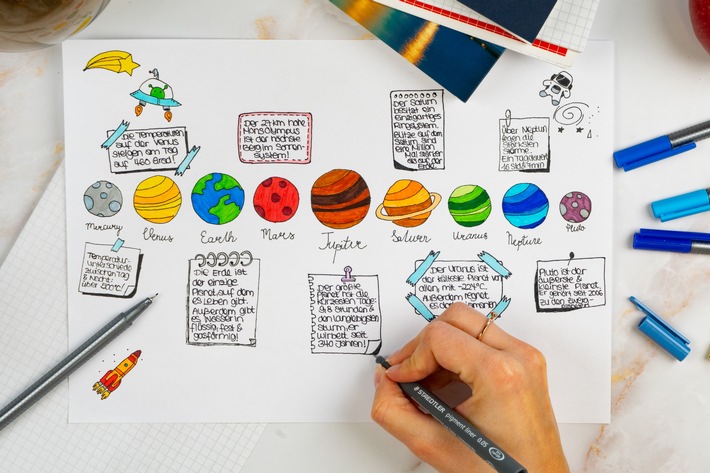 Die Temperaturen
auf der Venus
steigen am Tag
auf 460 Grad!
Der 27 km hohe
Mons Olympus
ist der höchste
Berg im Sonnen-
system!
Der Saturn
besitzt ein
einzigartiges
Ringsystem.
Blitze auf dem
Saturn sind
eine Million
Mal stärker
als auf der
Erde.
Über Neptun
fegen die
stärksten
Stürme.
Ein Tag dauert
16 Std & 7 min
Mercury
Venus
Earth
Mars
Jupiter
Saturn
Uranus
Neptune
Pluto
Temperatur-
unterschiede
zwischen Tag
& Nacht:
über
Die Erde ist
der einzige
Planet, auf dem
es Leben gibt.
Außerdem gibt
es Wasser in
flüssig, fest &
gasförmig!
Der größte
Planet hat die
kürzesten Tage:
9,8 Stunden &
den langlebigsten
Sturm, er
wirbelt seit
340 Jahren!
Der Uranus ist
der kälteste Planet von
allen, mit -224°C.
Außerdem regnet
es dort
Pluto ist der
äußerste &
kleinste Planet.
Er gehört seit 2006
zu den Zwerg-
planeten
STAEDTLER pigment liner 0.05